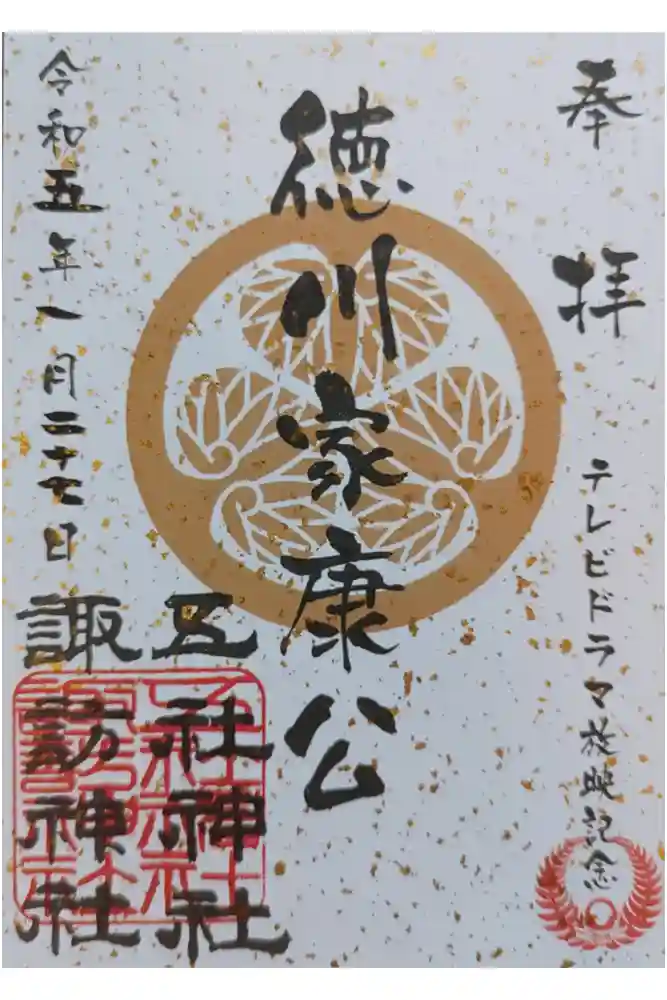 奉拝
テレビドラマ放映記念
徳川家康公
五社神社
諏訪神社
令和五年一月二十七日